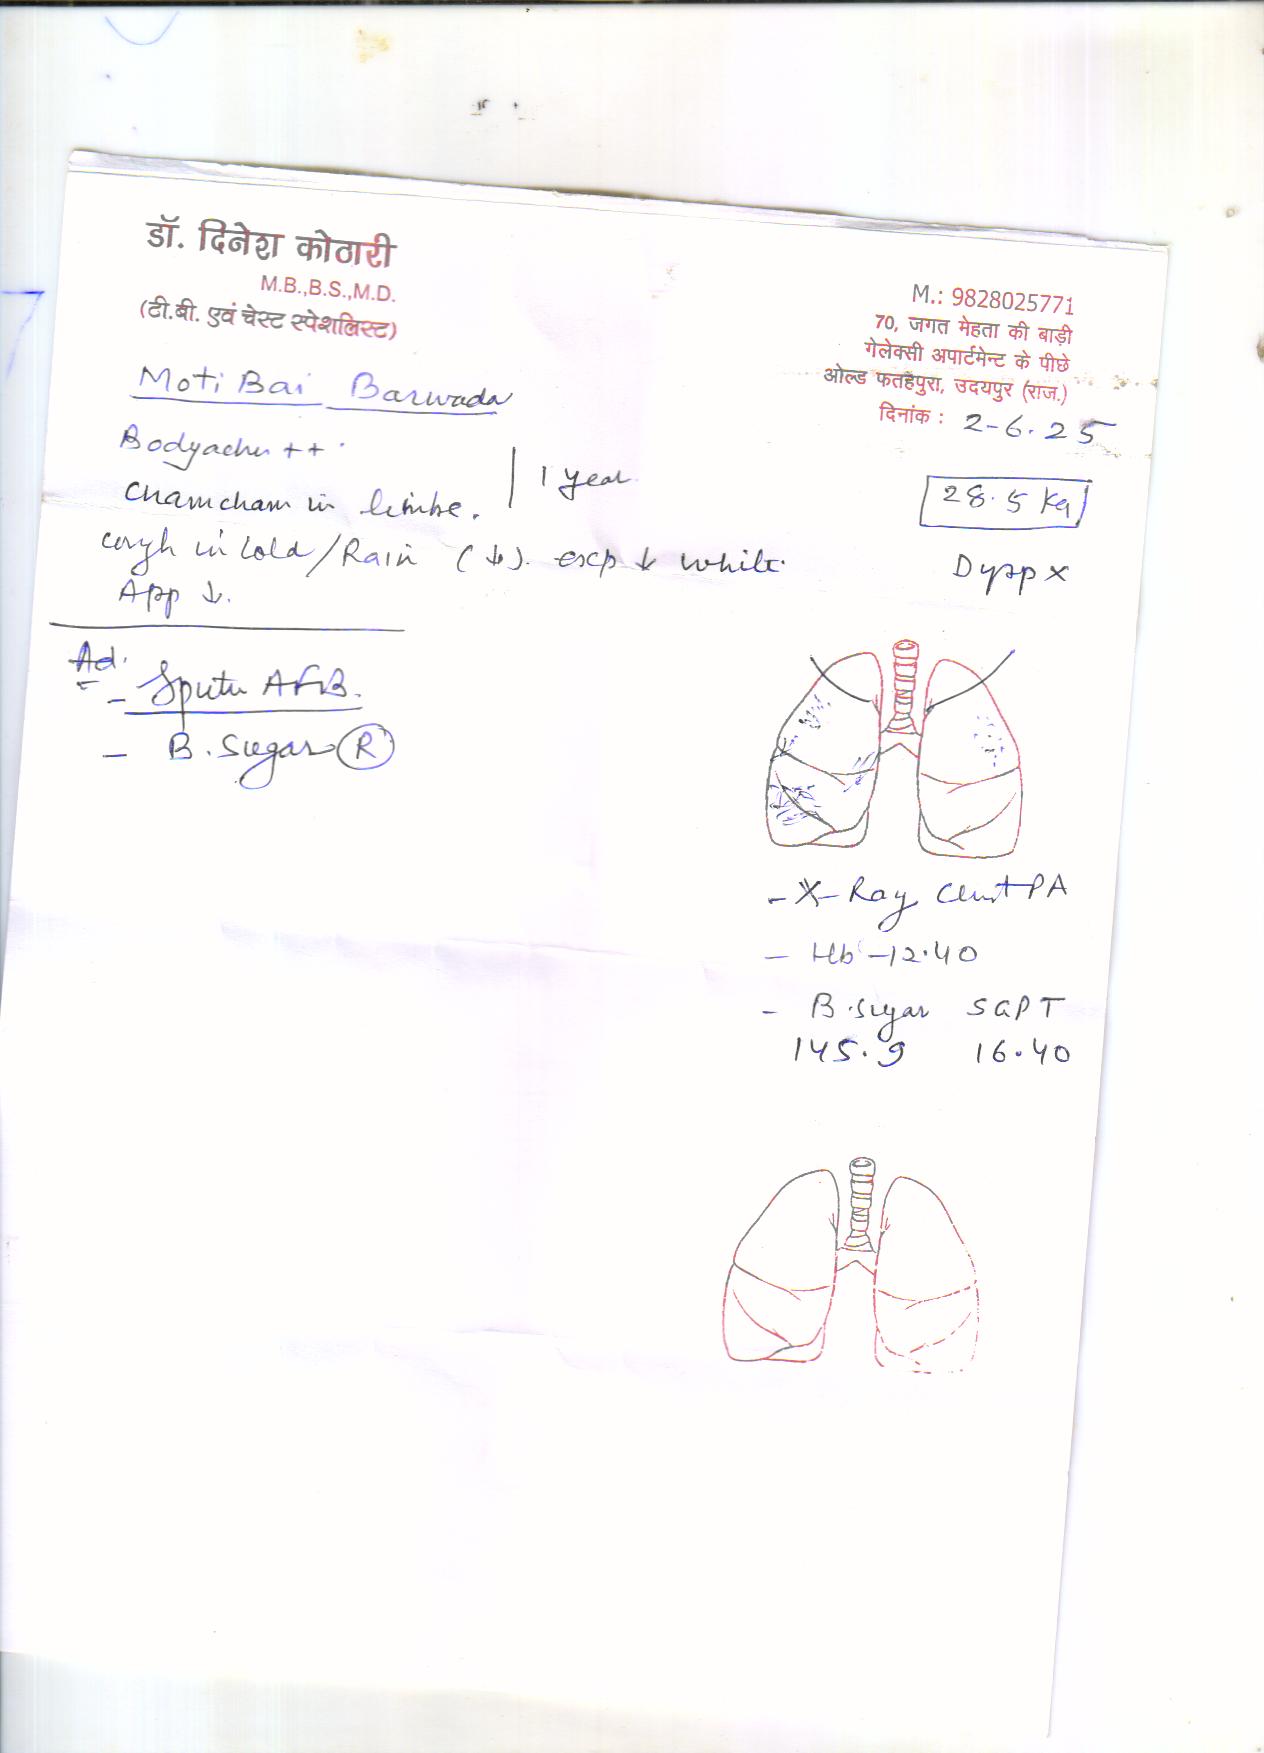 डॉ. दिनेश कोठारी
M.B.,B.S.,M.D.
(टी.बी. एवं चेस्ट स्पेशलिस्ट)
M.: 9828025771
70, जगत मेहता की बाड़ी
गेलेक्सी अपार्टमेन्ट के पीछे
ओल्ड फतहपुरा, उदयपुर (राज.)
दिनांक : 2-6.25
Moti Bai Barwada
Bodyaches ++
Chamcham in limbs. | 1 year
28.5 Kg
Cough in Cold/Rain (↓). exp ↓ white.
Dysp x
App ↓.
Ad.
- Sputu AFB.
- B. Sugar (R)
- X-Ray Chest PA
- Hb - 12.40
- B. Sugar SGPT
145.9 16.40